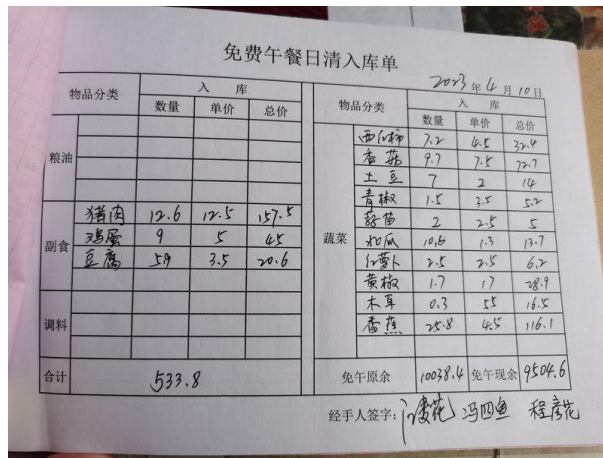 免费午餐日清入库单
2023年4月10日
物品分类 入库
数量 单价 总价
粮油
副食
猪肉 12.6 12.5 157.5
鸡蛋 9 5 45
豆腐 5.9 3.5 20.6
调料
合计 533.8
物品分类 入库
数量 单价 总价
蔬菜
西红柿 7.2 4.5 32.4
香菇 9.7 7.5 72.7
土豆 7 2 14
青椒 1.5 3.5 5.2
蒜苗 2 2.5 5
10.6 1.3 13.7
红萝卜 2.5 2.5 6.2
黄椒 1.7 17 28.9
木耳 0.3 55 16.5
香蕉 25.8 4.5 116.1
免午原余 10038.4 免午现余 9504.6
经手人签字: 冯四鱼 程彦花